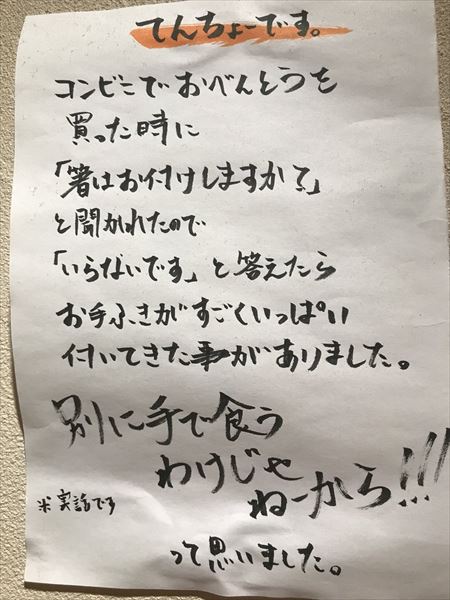 てんちょーです。
コンビニでおべんとうを
買った時に
「箸はお付けしますか?」
と聞かれたので
「いらないです」と答えたら
お手ふきがすごくいっぱい
付いてきた事がありました。
別に手で食う
わけじゃ
ねーから!!!
※実話です
って思いました。